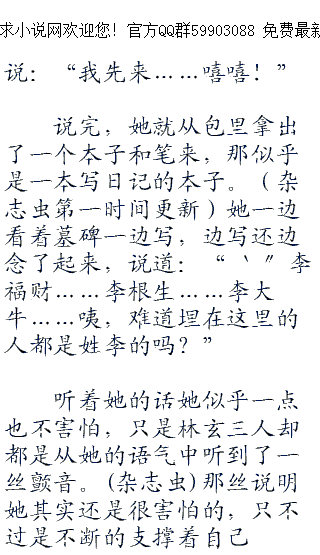 求小说网欢迎您！官方QQ群59903088 免费最新
说：“我先来……嘻嘻！”
说完，她就从包里拿出
了一个本子和笔来，那似乎
是一本写日记的本子。（杂
志虫第一时间更新）她一边
看着墓碑一边写，边写还边
念了起来，说道：“‵〞李
福财……李根生……李大
牛……咦，难道埋在这里的
人都是姓李的吗？”
听着她的话她似乎一点
也不害怕，只是林玄三人却
都是从她的语气中听到了一
丝颤音。(杂志虫)那丝说明
她其实还是很害怕的，只不
过是不断的支撑着自己